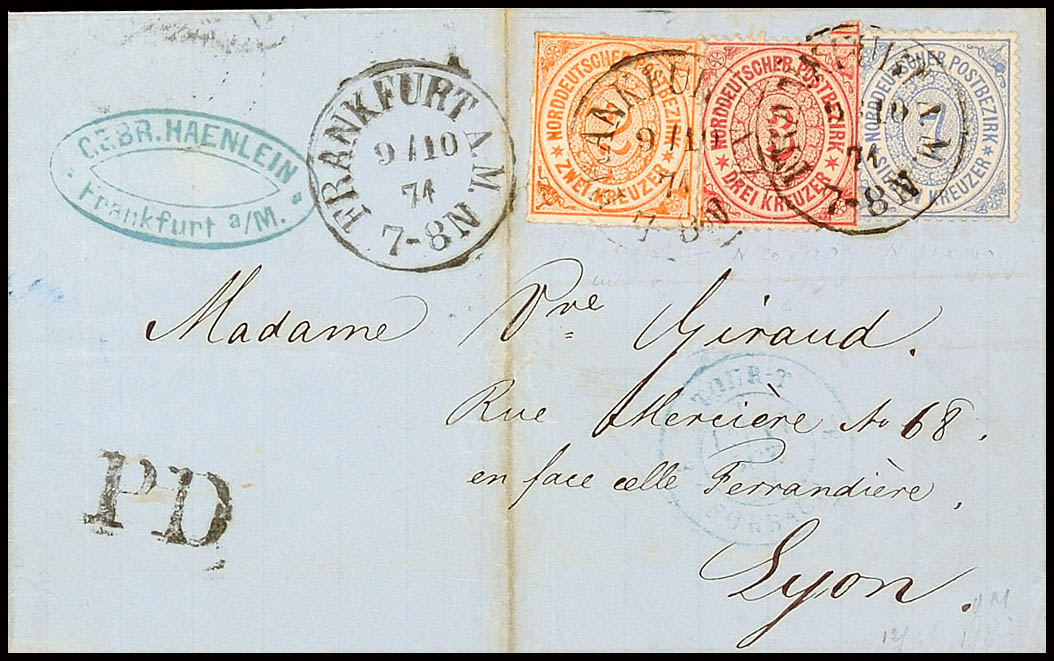 GEBR. HAENLEIN
Frankfurt a/M.
FRANKFURT A. M.
9/10
71
7-8N
NORDDEUTSCHER POSTBEZIRK
2
ZWEI KREUZER
FRANKFURT
9/10
71
7-8N
NORDDEUTSCHER POSTBEZIRK
DREI KREUZER
A.M.
10
71
7-8N
NORDDEUTSCHER POSTBEZIRK
7
SIEBEN KREUZER
Madame Vve Giraud.
Rue Mercière No 68.
en face celle Ferrandière
Lyon.
PD